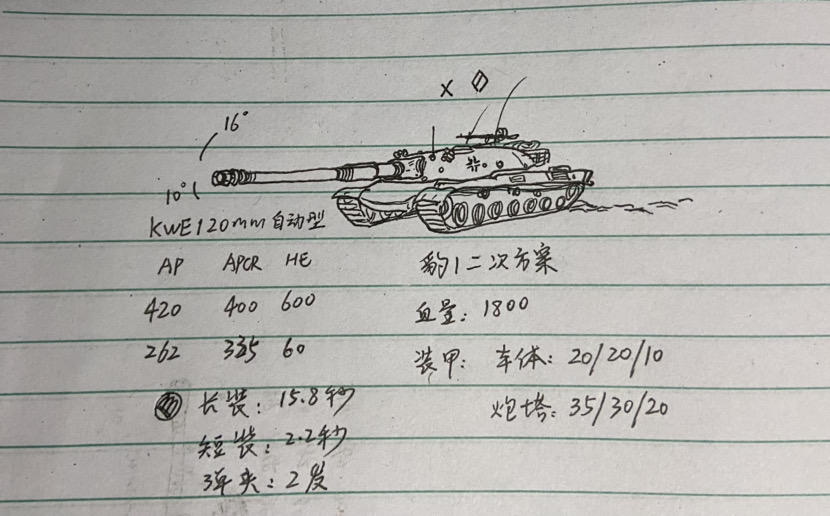 X
16°
10°
KWE120mm自动型
AP APCR HE
420 400 600
262 335 60
长装：15.8秒
短装：2.2秒
弹夹：2发
豹1二次方案
血量：1800
装甲：车体：20/20/10
炮塔：35/30/20